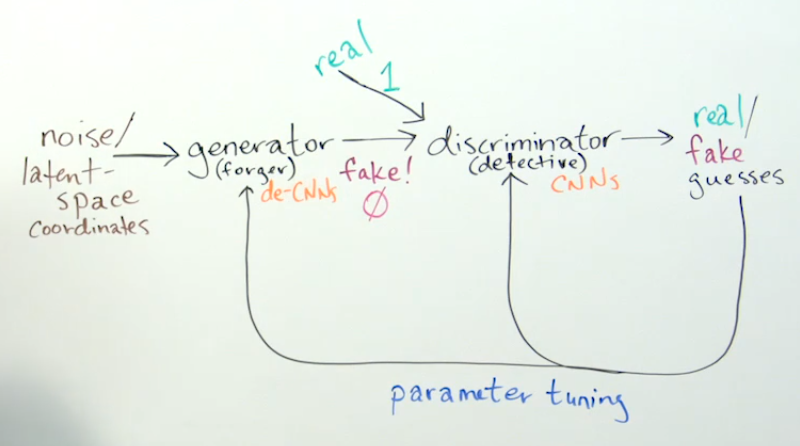 real
1
noise/
latent-
space
coordinates
generator
(forger)
de-CNNs
fake!
Ø
discriminator
(detective)
CNNs
real/
fake
guesses
parameter tuning